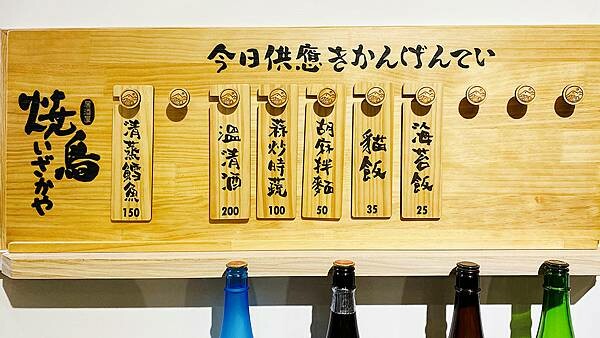 今日供應きかんげんてい
居酒屋
焼鳥
いざかや
清蒸鱈魚
150
溫清酒
200
蒜炒時蔬
100
胡麻拌麵
50
貓飯
35
海苔飯
25